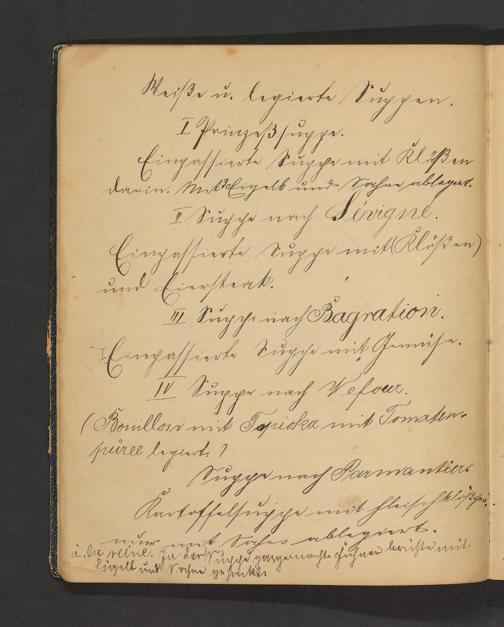 Weiße u. legierte Suppen.
I Prinzeßsuppe.
Einpassierte Suppe mit Klößen
darin. Mit Eigelb und Sahne ablegirt.
II Suppe nach Sévigné.
Einpassierte Suppe mit (Klößen)
und Eiersteak.
III Suppe nach Bagration.
Einpassierte Suppe mit Gemüse.
IV Suppe nach Vefour.
(Bouillon mit Tapioka mit Tomaten-
püree legiert.)
Suppe nach Parmantier
Kartoffelsuppe mit Fleischklößchen
nur mit Sahne ablegiert.
à la reine. In der Suppe Hühnerbrüste mit
Eigelb und Sahne gehackt.